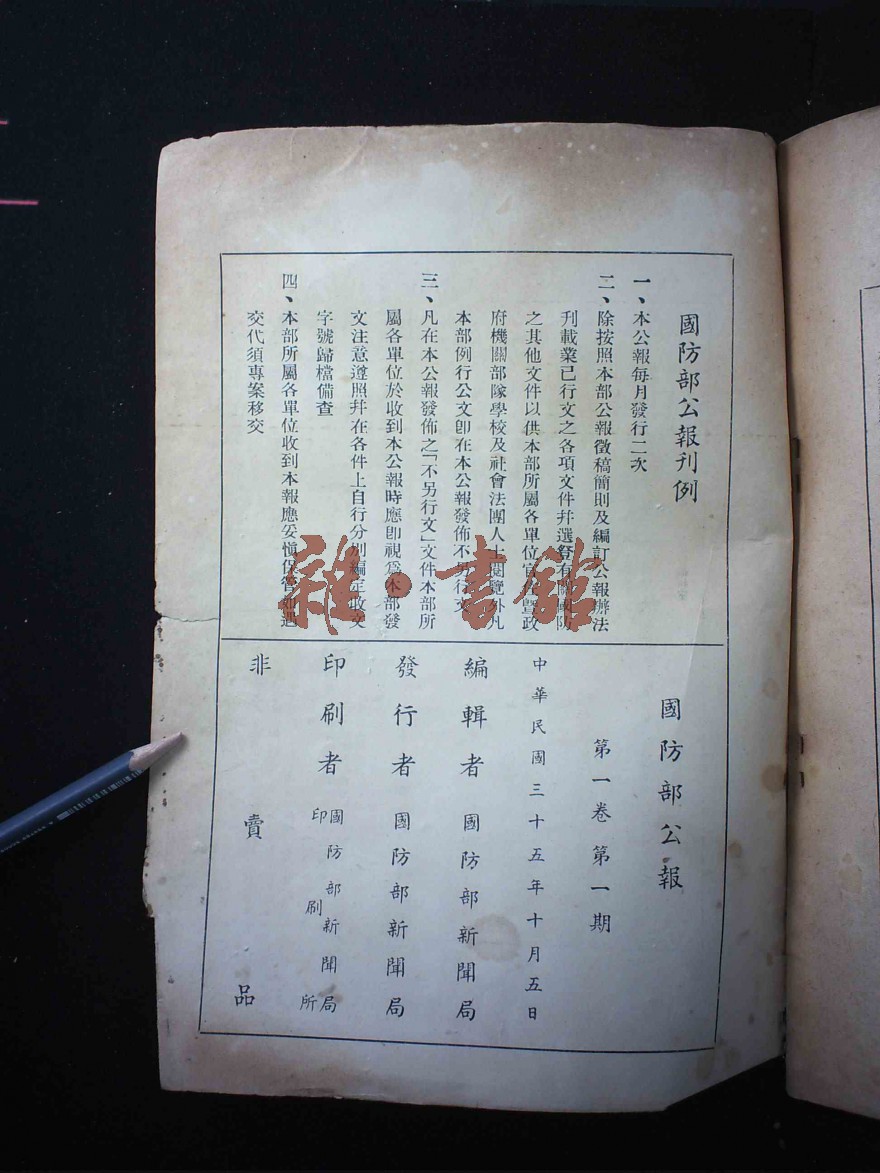 國防部公報刊例
一、本公報每月發行二次
二、除按照本部公報徵稿簡則及編訂公報辦法
刋載業已行文之各項文件幷選登有關國防
之其他文件以供本部所屬各單位官兵曁政
府機關部隊學校及社會法團人士閱覽外凡
本部例行公文卽在本公報發佈不另行文
三、凡在本公報發佈之「不另行文」文件本部所
屬各單位於收到本公報時應卽視爲本部發
文注意遵照幷在各件上自行分別編定收文
字號歸檔備查
四、本部所屬各單位收到本報應妥愼保管如遇
交代須專案移交
國防部公報
第一卷第一期
中華民國三十五年十月五日
編輯者 國防部新聞局
發行者 國防部新聞局
印刷者 國防部新聞局
印刷所
非賣品
雜·書館